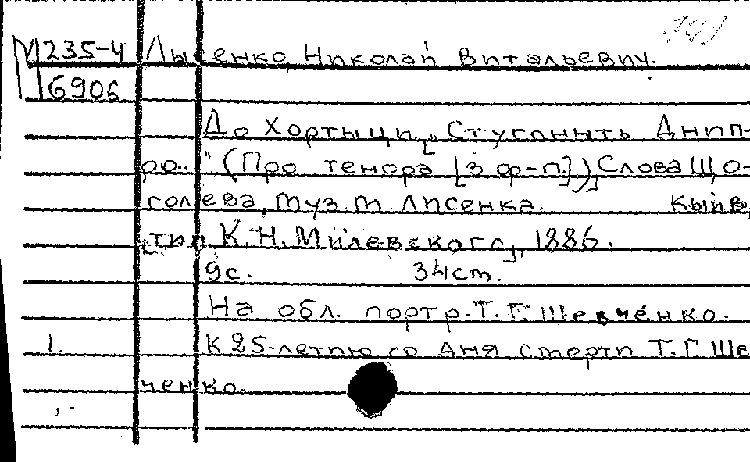 М 235-4 Лысенко, Николай Витальевич.
6906
До Хортыци. „Стугоныть Днип-
ро.." (Про тенора [з ф-п.]) Слова Що-
голева, муз. М. Лисенка. Кыйв,
[тип. К. Н. Милевского], 1886.
9с. 34 ст.
На обл. портр. Т. Г. Шевченко.
1. К 25-летию со дня смерти Т. Г. Ше
ченко.